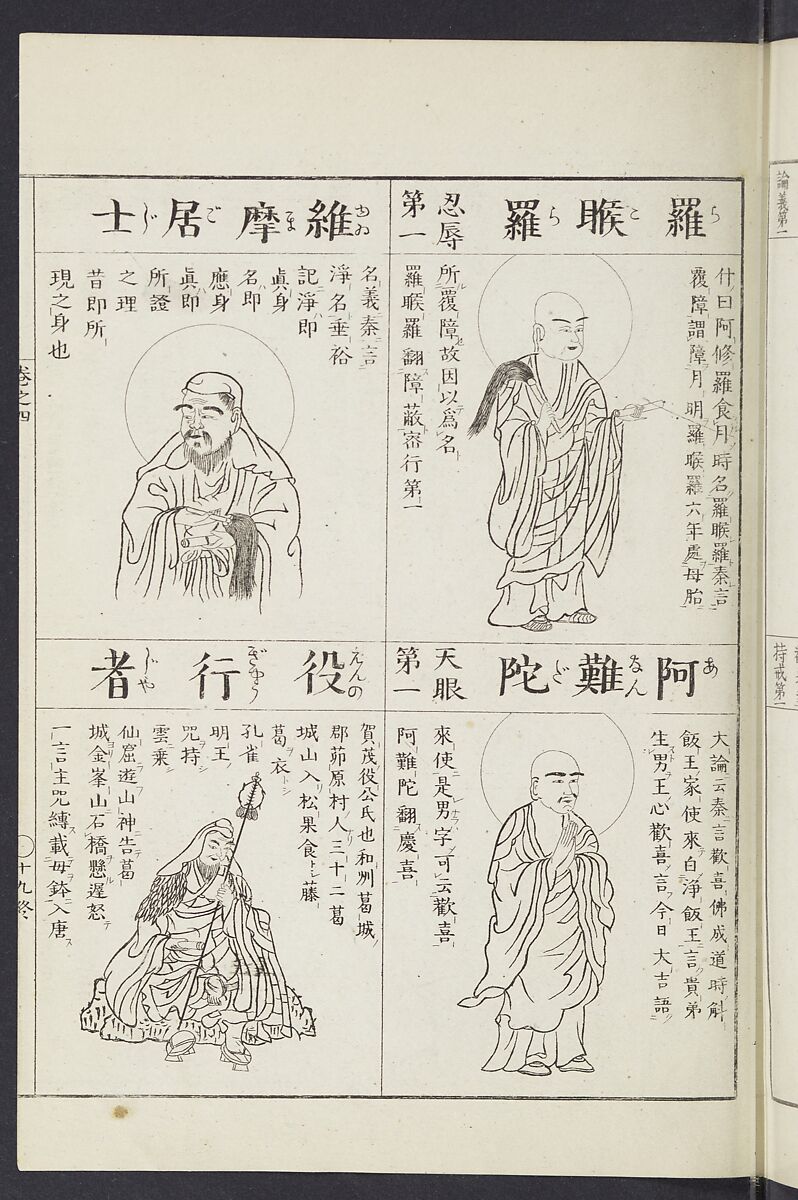 羅睺羅
らこら
忍辱
第一
什曰阿修羅食月時名羅睺羅秦言
覆障謂障月明羅睺羅六年處母胎
所覆障故因以爲名
羅睺羅翻障蔽密行第一
維摩居士
ゐまごじ
名義秦言
淨名垂裕
記淨即
眞身
名即
應身
眞即
所證
之理
昔即所
現之身也
阿難陀
あなんだ
天眼
第一
大論云秦言歡喜佛成道時斛
飯王家使來白淨飯王言貴弟
生男王心歡喜言今日大吉語
來使是男字可云歡喜
阿難陀翻慶喜
役行者
えんのぎやうじや
賀茂役公氏也和州葛城
郡茆原村人三十二葛
城山入松果食藤
葛衣
孔雀
明王
咒持
雲乗
仙窟遊山神告葛
城金峯山石橋懸遅怒
一言主咒縛載母鉢入唐
卷之四
十九終
論義第一
持戒第一